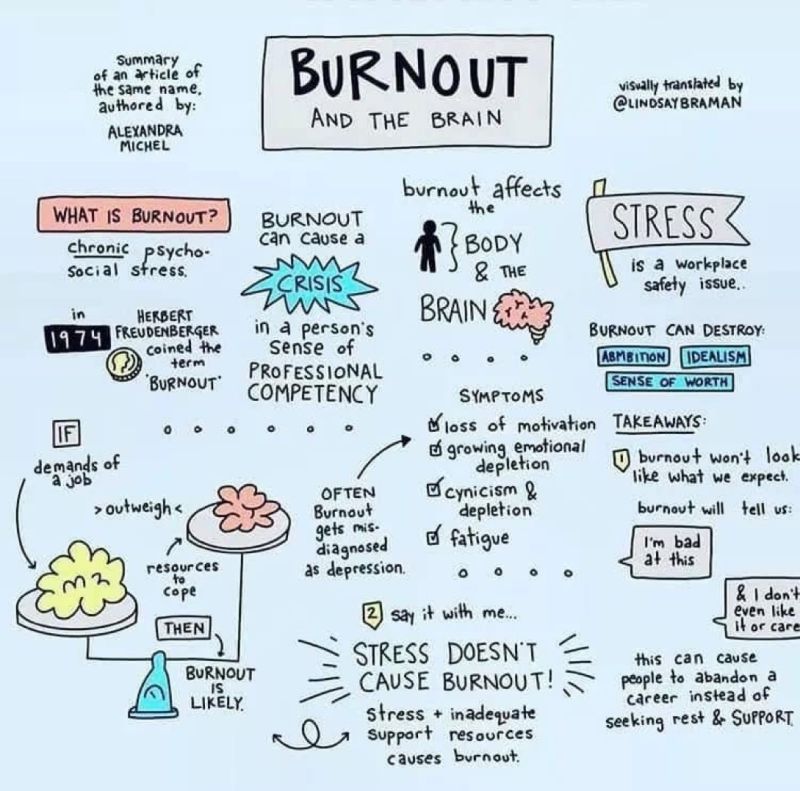 Summary
of an article of
the same name,
authored by:
ALEXANDRA
MICHEL
BURNOUT
AND THE BRAIN
visually translated by
@LINDSAYBRAMAN
WHAT IS BURNOUT?
chronic psycho-
social stress.
in
1974
HERBERT
FREUDENBERGER
coined the
term
"BURNOUT"
BURNOUT
can cause a
CRISIS
in a person's
sense of
PROFESSIONAL
COMPETENCY
burnout affects
the
BODY
& THE
BRAIN
STRESS
is a workplace
safety issue..
BURNOUT CAN DESTROY:
ABMBITION
IDEALISM
SENSE OF WORTH
IF
demands of
a job
>outweigh<
resources
to
cope
THEN
BURNOUT
IS
LIKELY.
OFTEN
Burnout
gets mis-
diagnosed
as depression.
SYMPTOMS
loss of motivation
growing emotional
depletion
cynicism &
depletion
fatigue
TAKEAWAYS:
1 burnout won't look
like what we expect.
burnout will tell us:
I'm bad
at this
& I don't
even like
it or care
this can cause
people to abandon a
career instead of
seeking rest & SUPPORT
2 say it with me...
STRESS DOESN'T
CAUSE BURNOUT!
Stress + inadequate
support resources
causes burnout.